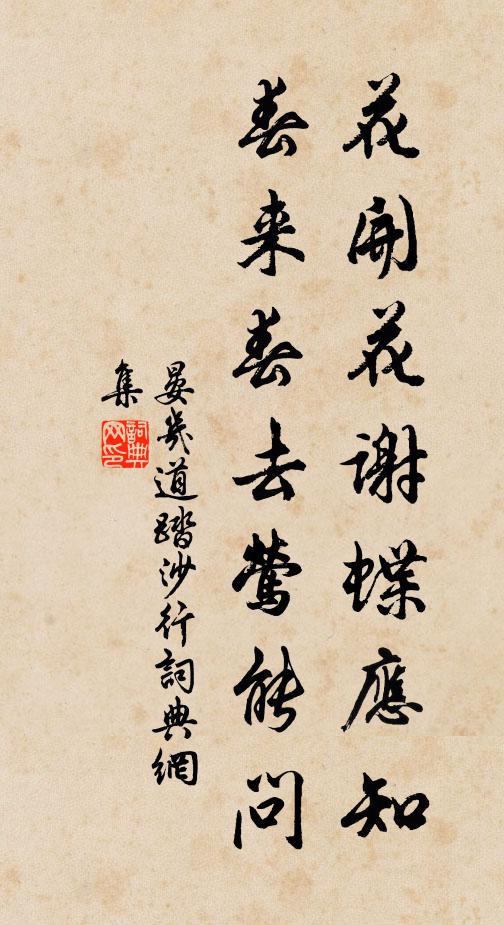 花開花謝蝶應知
春来春去鶯能問
晏幾道踏沙行詞典網
集
詞典網印